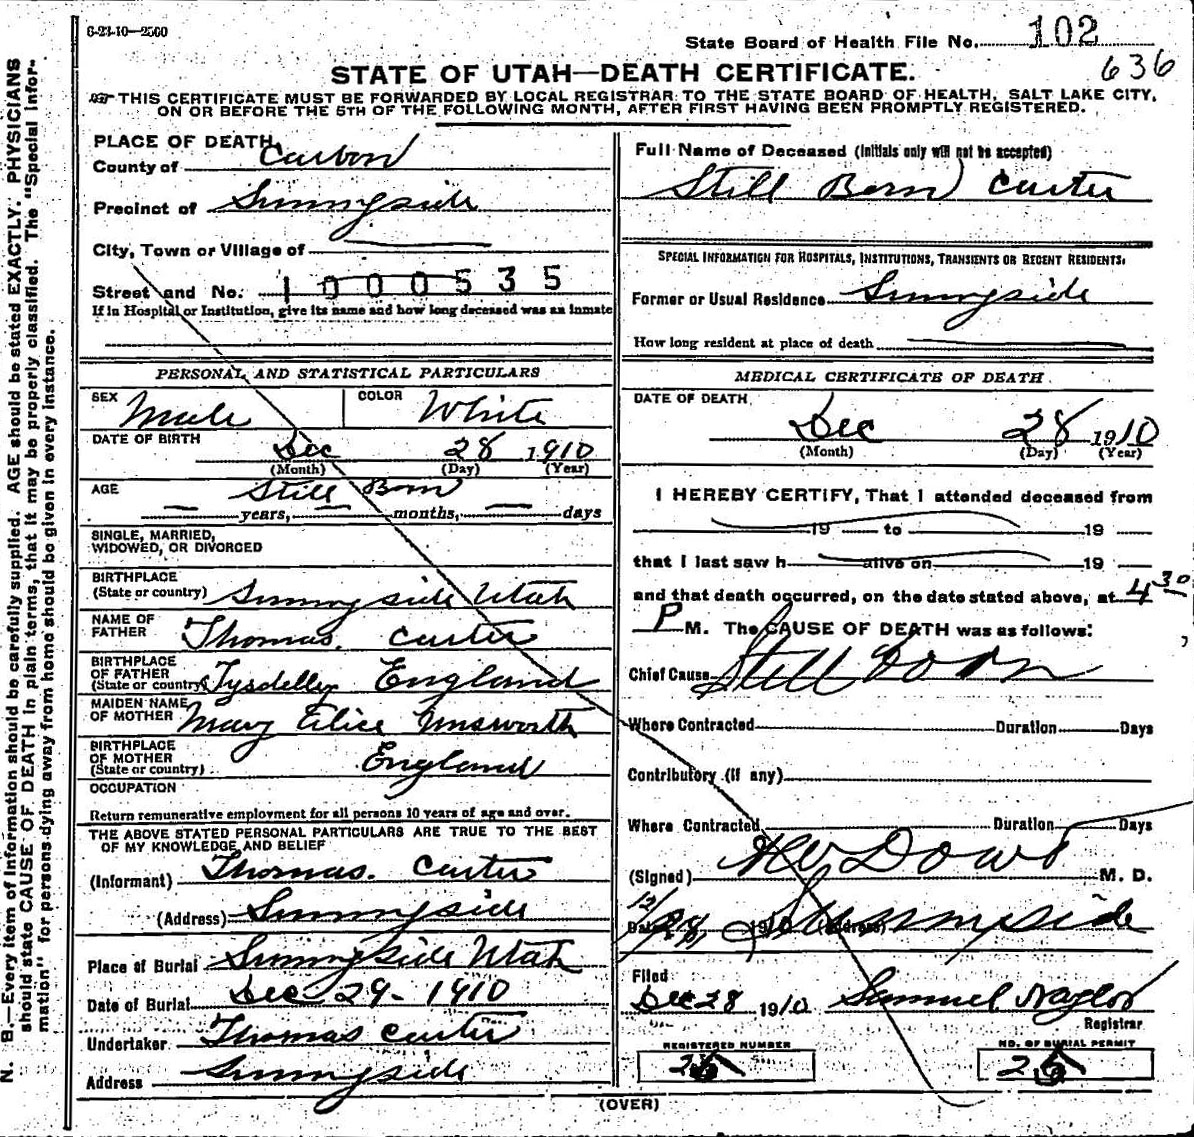 6-23-10—2500
State Board of Health File No. 102
636
STATE OF UTAH—DEATH CERTIFICATE.
THIS CERTIFICATE MUST BE FORWARDED BY LOCAL REGISTRAR TO THE STATE BOARD OF HEALTH, SALT LAKE CITY,
ON OR BEFORE THE 5TH OF THE FOLLOWING MONTH, AFTER FIRST HAVING BEEN PROMPTLY REGISTERED.
N. B.—Every item of information should be carefully supplied. AGE should be stated EXACTLY. PHYSICIANS
should state CAUSE OF DEATH in plain terms, that it may be properly classified. The "Special Infor-
mation" for persons dying away from home should be given in every instance.
PLACE OF DEATH
County of Carbon
Precinct of Sunnyside
City, Town or Village of
Street and No. 1000535
If in Hospital or Institution, give its name and how long deceased was an inmate
PERSONAL AND STATISTICAL PARTICULARS
SEX Male COLOR White
DATE OF BIRTH Dec 28 1910
(Month) (Day) (Year)
AGE Still Born
years, months, days
SINGLE, MARRIED,
WIDOWED, OR DIVORCED
BIRTHPLACE
(State or country) Sunnyside Utah
NAME OF
FATHER Thomas. Carter
BIRTHPLACE
OF FATHER
(State or country) Tysdelley England
MAIDEN NAME
OF MOTHER Mary Alice Unsworth
BIRTHPLACE
OF MOTHER
(State or country) England
OCCUPATION
Return remunerative employment for all persons 10 years of age and over.
THE ABOVE STATED PERSONAL PARTICULARS ARE TRUE TO THE BEST
OF MY KNOWLEDGE AND BELIEF
(Informant) Thomas. Carter
(Address) Sunnyside
Place of Burial Sunnyside Utah
Date of Burial Dec 29 - 1910
Undertaker Thomas Carter
Address Sunnyside
Full Name of Deceased (Initials only will not be accepted)
Still Born Carter
SPECIAL INFORMATION FOR HOSPITALS, INSTITUTIONS, TRANSIENTS OR RECENT RESIDENTS.
Former or Usual Residence Sunnyside
How long resident at place of death
MEDICAL CERTIFICATE OF DEATH
DATE OF DEATH
Dec 28 1910
(Month) (Day) (Year)
I HEREBY CERTIFY, That I attended deceased from
19 to 19
that I last saw h alive on 19
and that death occurred, on the date stated above, at 4 30
P M. The CAUSE OF DEATH was as follows:
Chief Cause Still Born
Where Contracted Duration Days
Contributory (if any)
Where Contracted Duration Days
(Signed) Dowd M. D.
12/28 1910 (Address) Sunnyside
Filed
Dec 28 1910 Samuel Naylor
Registrar
REGISTERED NUMBER NO. OF BURIAL PERMIT
26 26
(OVER)